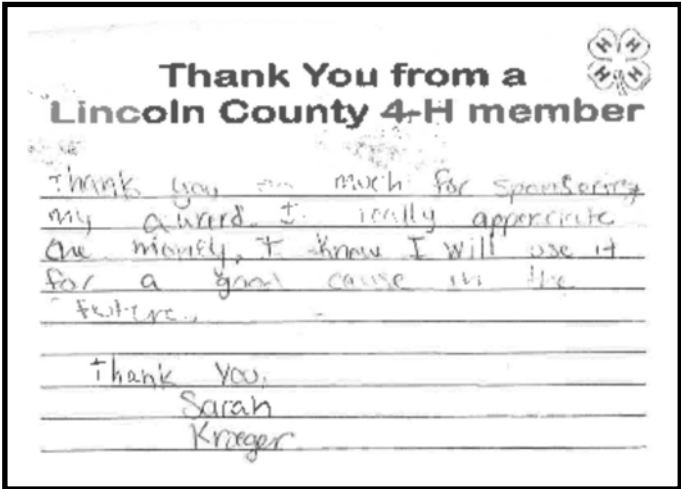 H H
H H
Thank You from a
Lincoln County 4-H member
Thank you much for sponsoring
my award. I really apperciate
the money, I know I will use it
for a good cause in the
future.
Thank you,
Sarah
Kroeger